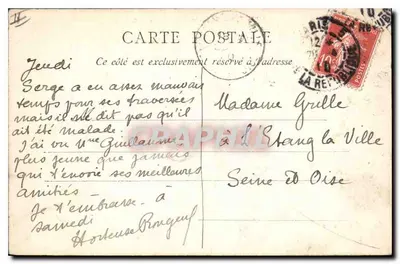 CARTE POSTALE
Ce côté est exclusivement réservé à l'adresse
Jeudi
Serge a eu assez mauvais
temps pour ses traversées
mais il ne dit pas qu'il
ait été malade.
J'ai vu Me Guillaume
plus jeune que jamais
qui t'envoie ses meilleures
amitiés —
Je t'embrasse — à
samedi
Hortense
Madame Grille
à l'Etang la Ville
Seine et Oise
PARIS
LA REPUBLIQUE